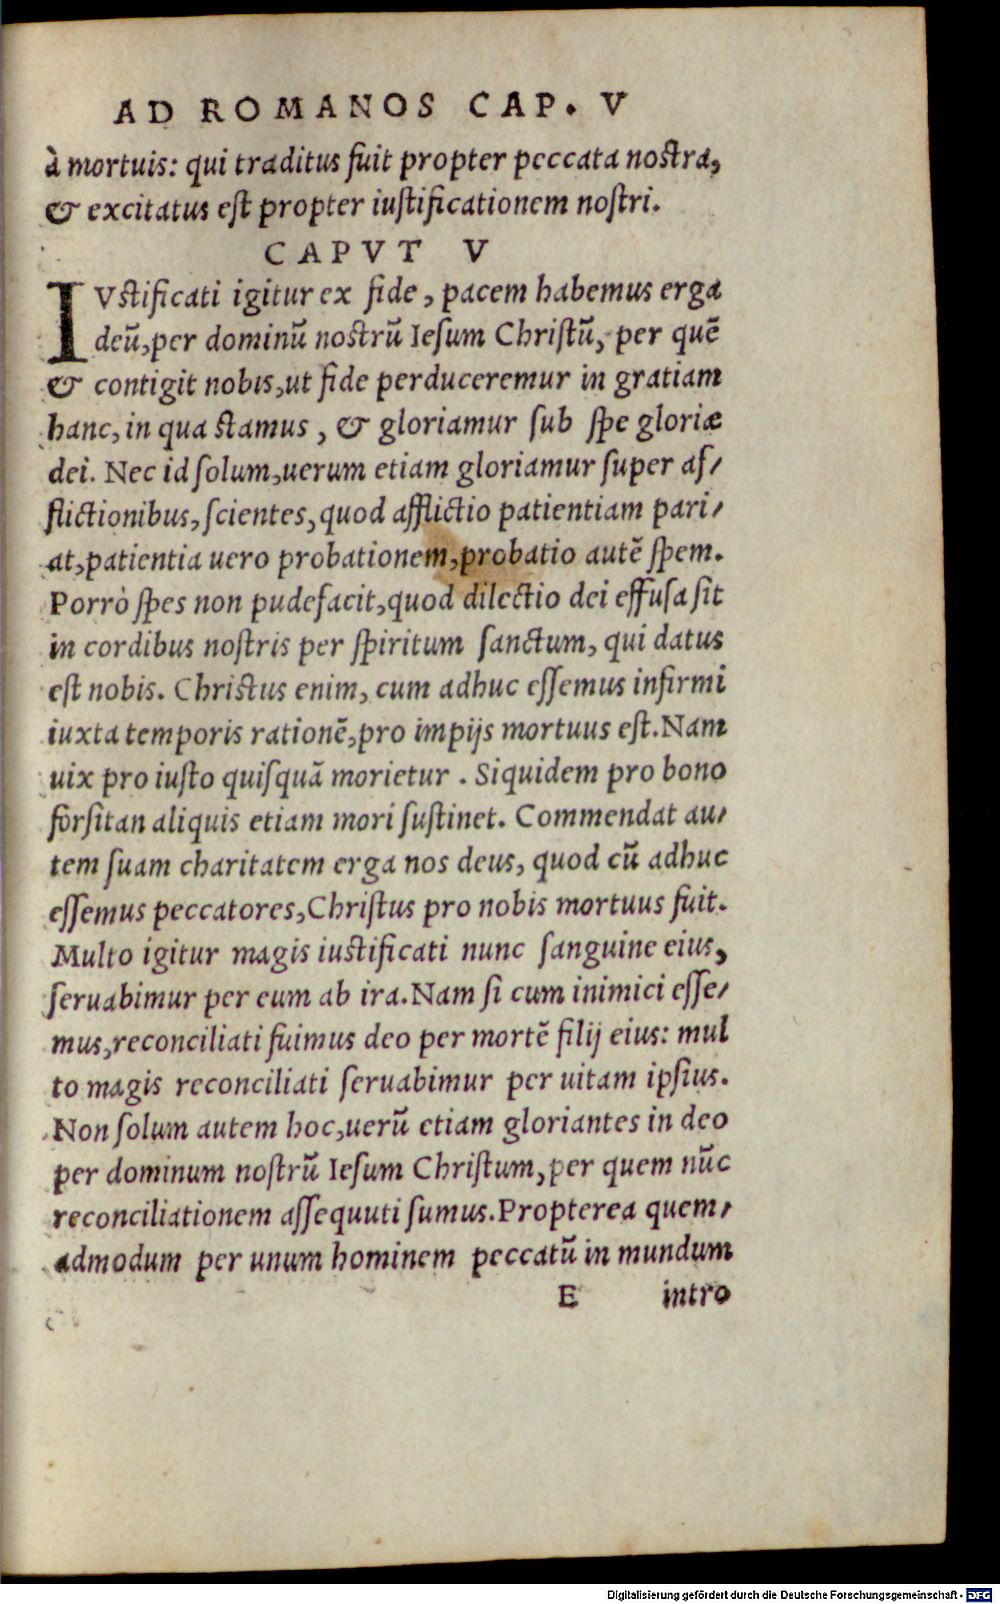 AD ROMANOS CAP. V
à mortuis: qui traditus fuit propter peccata nostra,
& excitatus est propter iustificationem nostri.
CAPVT V
IVstificati igitur ex fide, pacem habemus erga
deū, per dominū nostrū Iesum Christū, per quē
& contigit nobis, ut fide perduceremur in gratiam
hanc, in qua stamus, & gloriamur sub spe gloriæ
dei. Nec id solum, uerum etiam gloriamur super af/
flictionibus, scientes, quod afflictio patientiam pari/
at, patientia uero probationem, probatio autē spem.
Porrò spes non pudefacit, quod dilectio dei effusa sit
in cordibus nostris per spiritum sanctum, qui datus
est nobis. Christus enim, cum adhuc essemus infirmi
iuxta temporis rationē, pro impijs mortuus est. Nam
uix pro iusto quisquā morietur. Siquidem pro bono
forsitan aliquis etiam mori sustinet. Commendat au/
tem suam charitatem erga nos deus, quod cū adhuc
essemus peccatores, Christus pro nobis mortuus fuit.
Multo igitur magis iustificati nunc sanguine eius,
seruabimur per eum ab ira. Nam si cum inimici esse/
mus, reconciliati fuimus deo per mortē filij eius: mul
to magis reconciliati seruabimur per uitam ipsius.
Non solum autem hoc, uerū etiam gloriantes in deo
per dominum nostrū Iesum Christum, per quem nūc
reconciliationem assequuti sumus. Propterea quem/
admodum per unum hominem peccatū in mundum
E intro
Digitalisierung gefördert durch die Deutsche Forschungsgemeinschaft - DFG